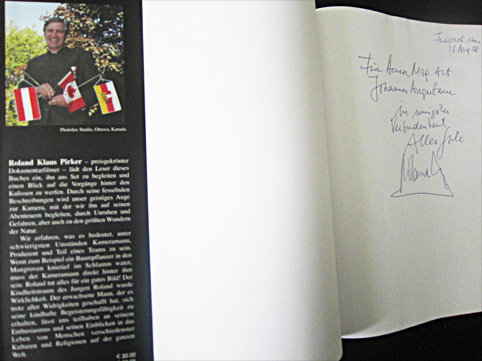 Photolux Studio, Ottawa, Kanada
Roland Klaus Pirker – preisgekrönter
Dokumentarfilmer – lädt den Leser dieses
Buches ein, ihn ans Set zu begleiten und
einen Blick auf die Vorgänge hinter den
Kulissen zu werfen. Durch seine fesselnden
Beschreibungen wird unser geistiges Auge
zur Kamera, mit der wir ihn auf seinen
Abenteuern begleiten, durch Unruhen und
Gefahren, aber auch zu den größten Wundern
der Natur.
Wir erfahren, was es bedeutet, unter
schwierigsten Umständen Kameramann,
Produzent und Teil eines Teams zu sein.
Wenn zum Beispiel ein Baumpflanzer in den
Mangroven knietief im Schlamm watet,
muss der Kameramann direkt hinter ihm
sein. Roland tut alles für ein gutes Bild! Der
Kindheitstraum des Jungen Roland wurde
Wirklichkeit. Der erwachsene Mann, der es
trotz aller Widrigkeiten geschafft hat, sich
seine kindhafte Begeisterungsfähigkeit zu
erhalten, lässt uns teilhaben an seinem
Enthusiasmus und seinen Einblicken in das
Leben von Menschen verschiedenster
Kulturen und Religionen auf der ganzen
Welt.
€ 30.00
Für
Johannes
in inniger
Verbundenheit
Alles Gute
Roland